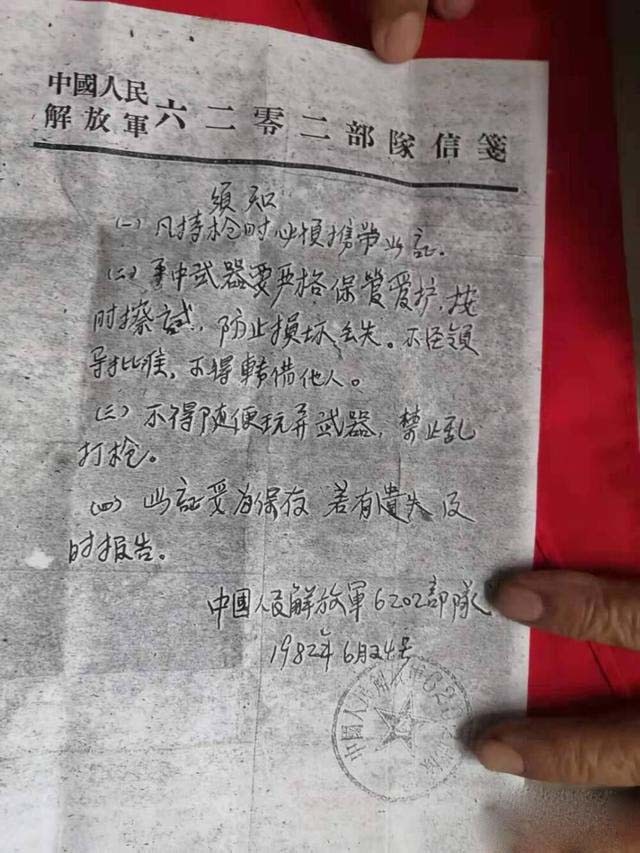 中國人民
解放軍六二零二部隊信箋
須知
(一) 凡持枪时必須携带此証.
(二) 手中武器要严格保管爱护，按
时擦拭，防止损坏丢失。不经领
导批准，不得轉借他人。
(三) 不得随便玩弄武器，禁止乱
打枪。
(四) 此証妥为保存 若有遺失 及
时报告。
中國人民解放軍6202部隊
1982年6月24号